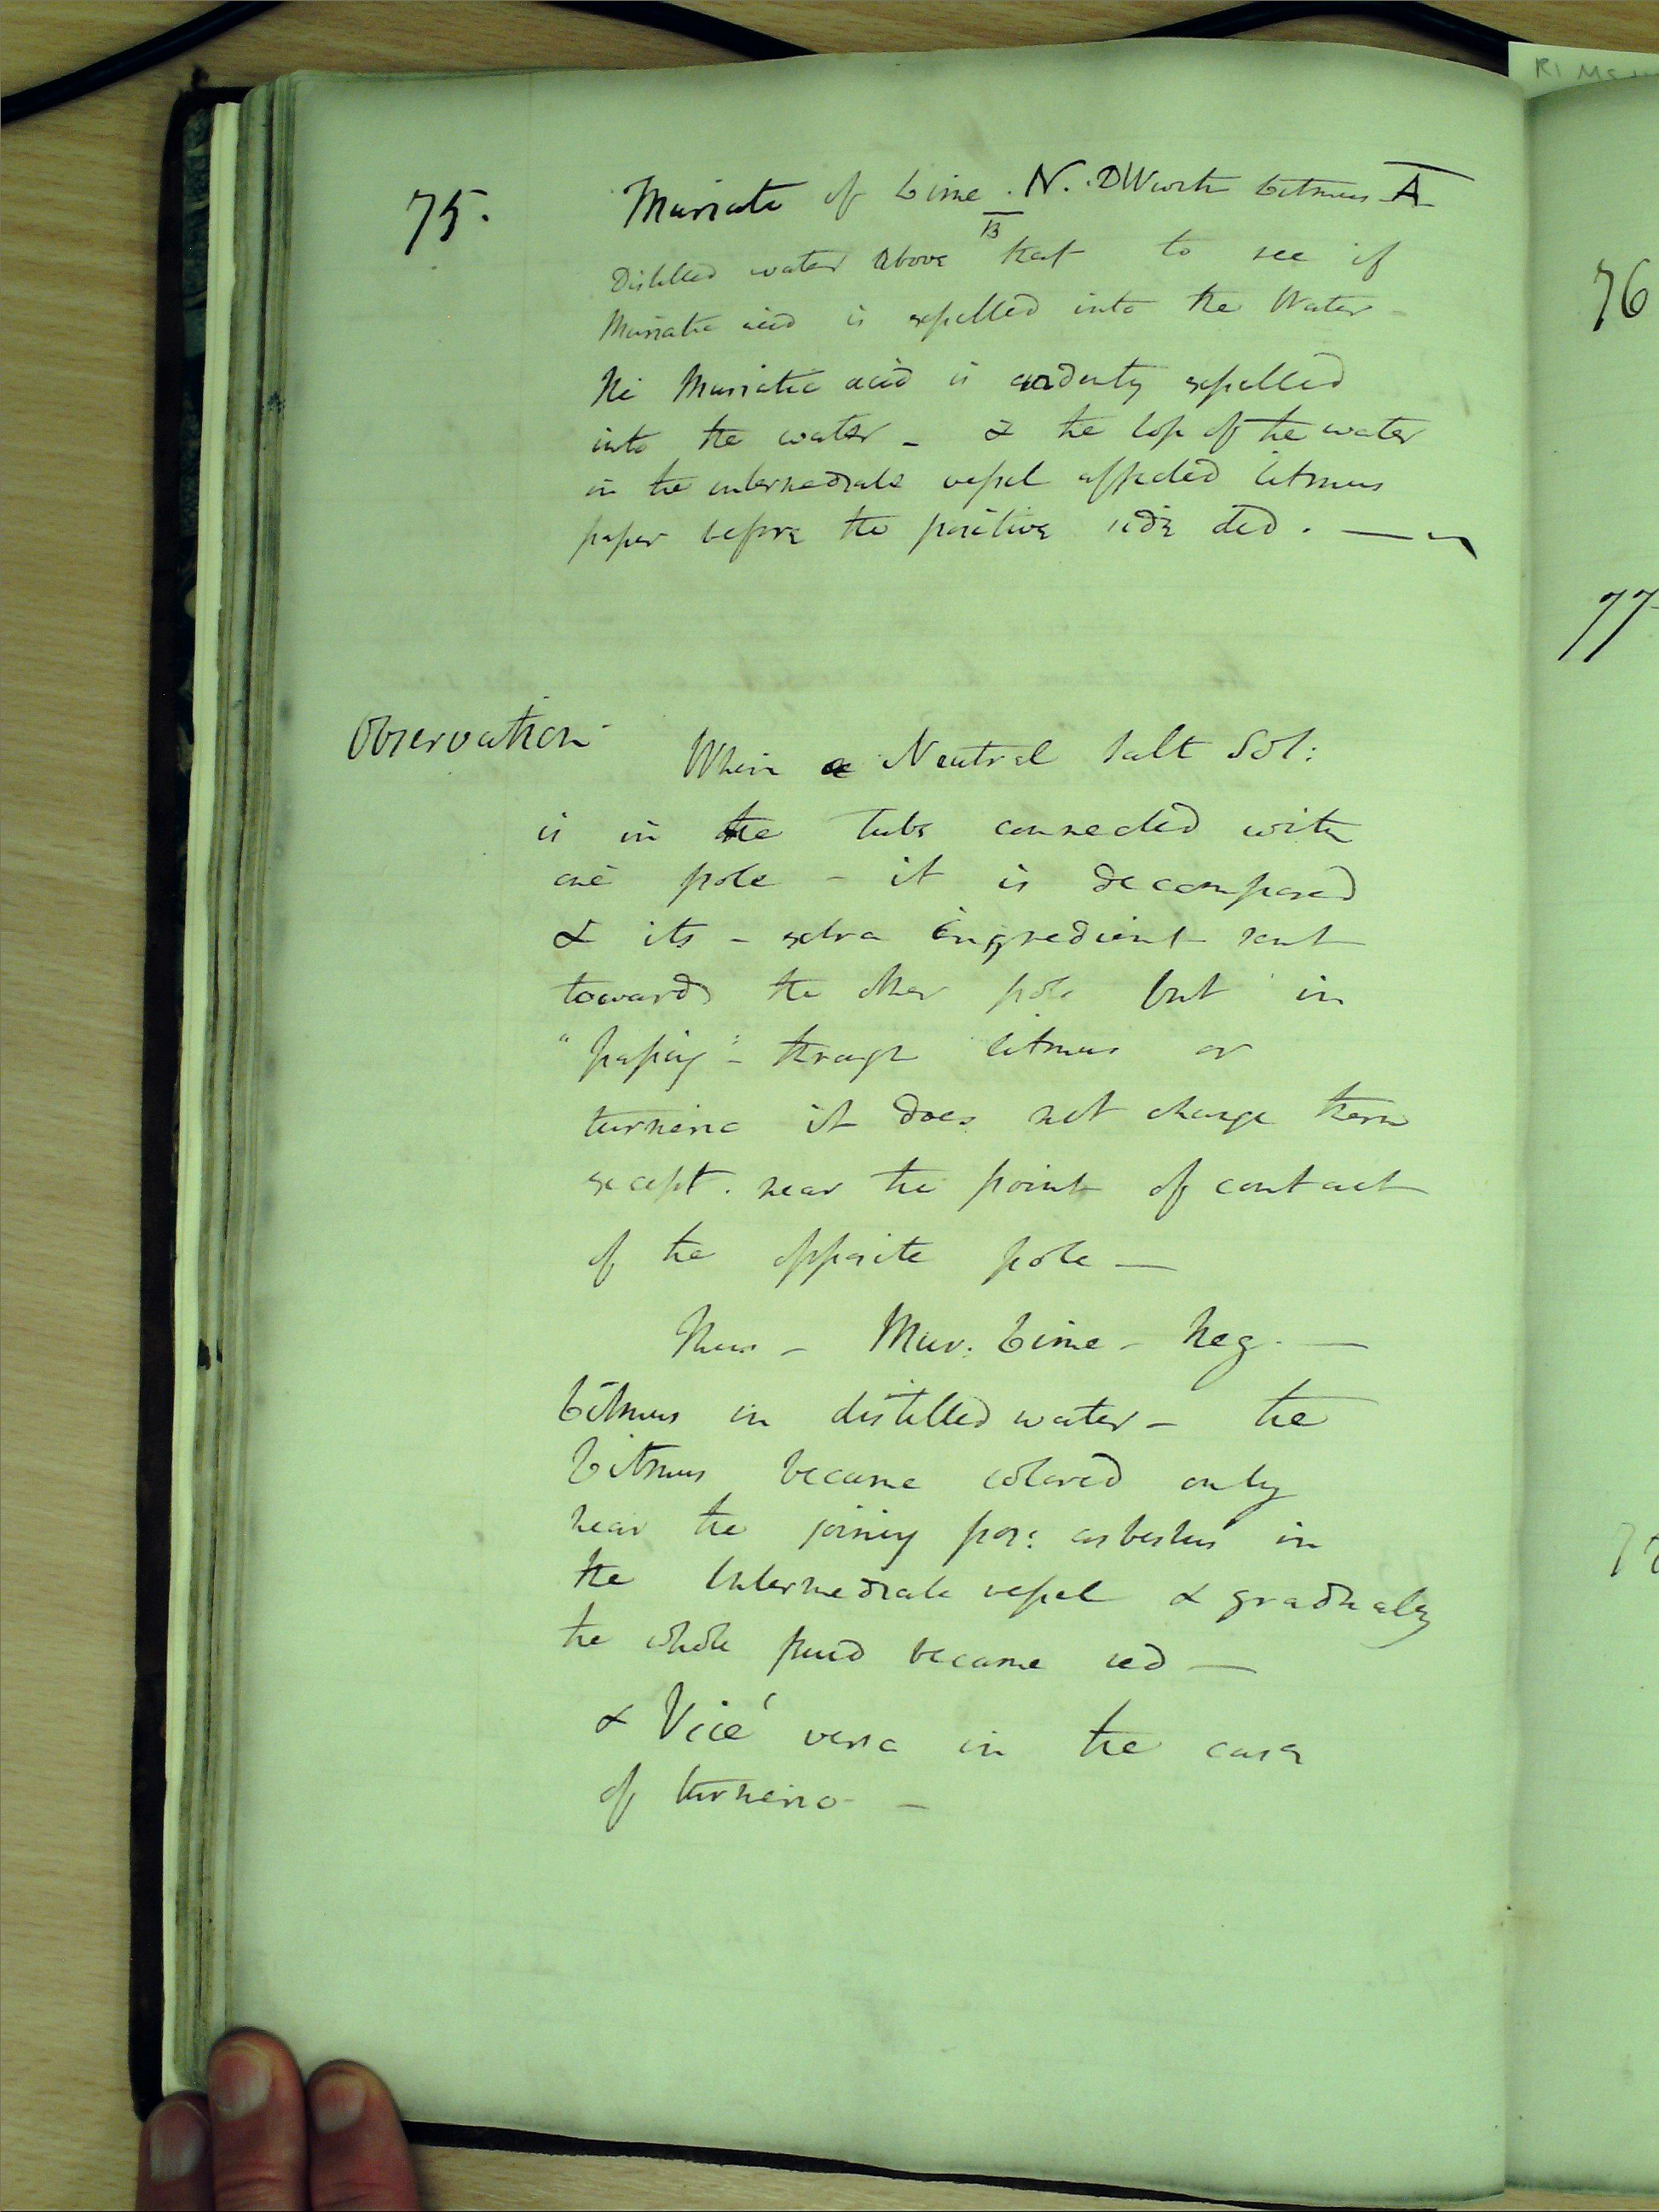 RI MS
75. Muriate of Lime . N. . DW with Litmus A
B
Distilled water above that to see if
Muriatic acid is expelled into the Water -
The Muriatic acid is evidently expelled
into the water - & the top of the water
in the intermediate vessel affected litmus
paper before the positive side did . —
Observation
When a Neutral Salt Sol:
is in the tube connected with
one pole - it is decomposed
& its - extra ingredient sent
towards the other pole but in
"passing" - through litmus or
turmeric it does not change them
except . near the point of contact
of the opposite pole —
Thus - Mur. Lime - Neg. —
Litmus in distilled water - the
Litmus became colored only
near the joining pos: asbestus in
the Intermediate vessel & gradualy
the whole fluid became red —
& Vicé versa in the case
of turmeric -
76
77